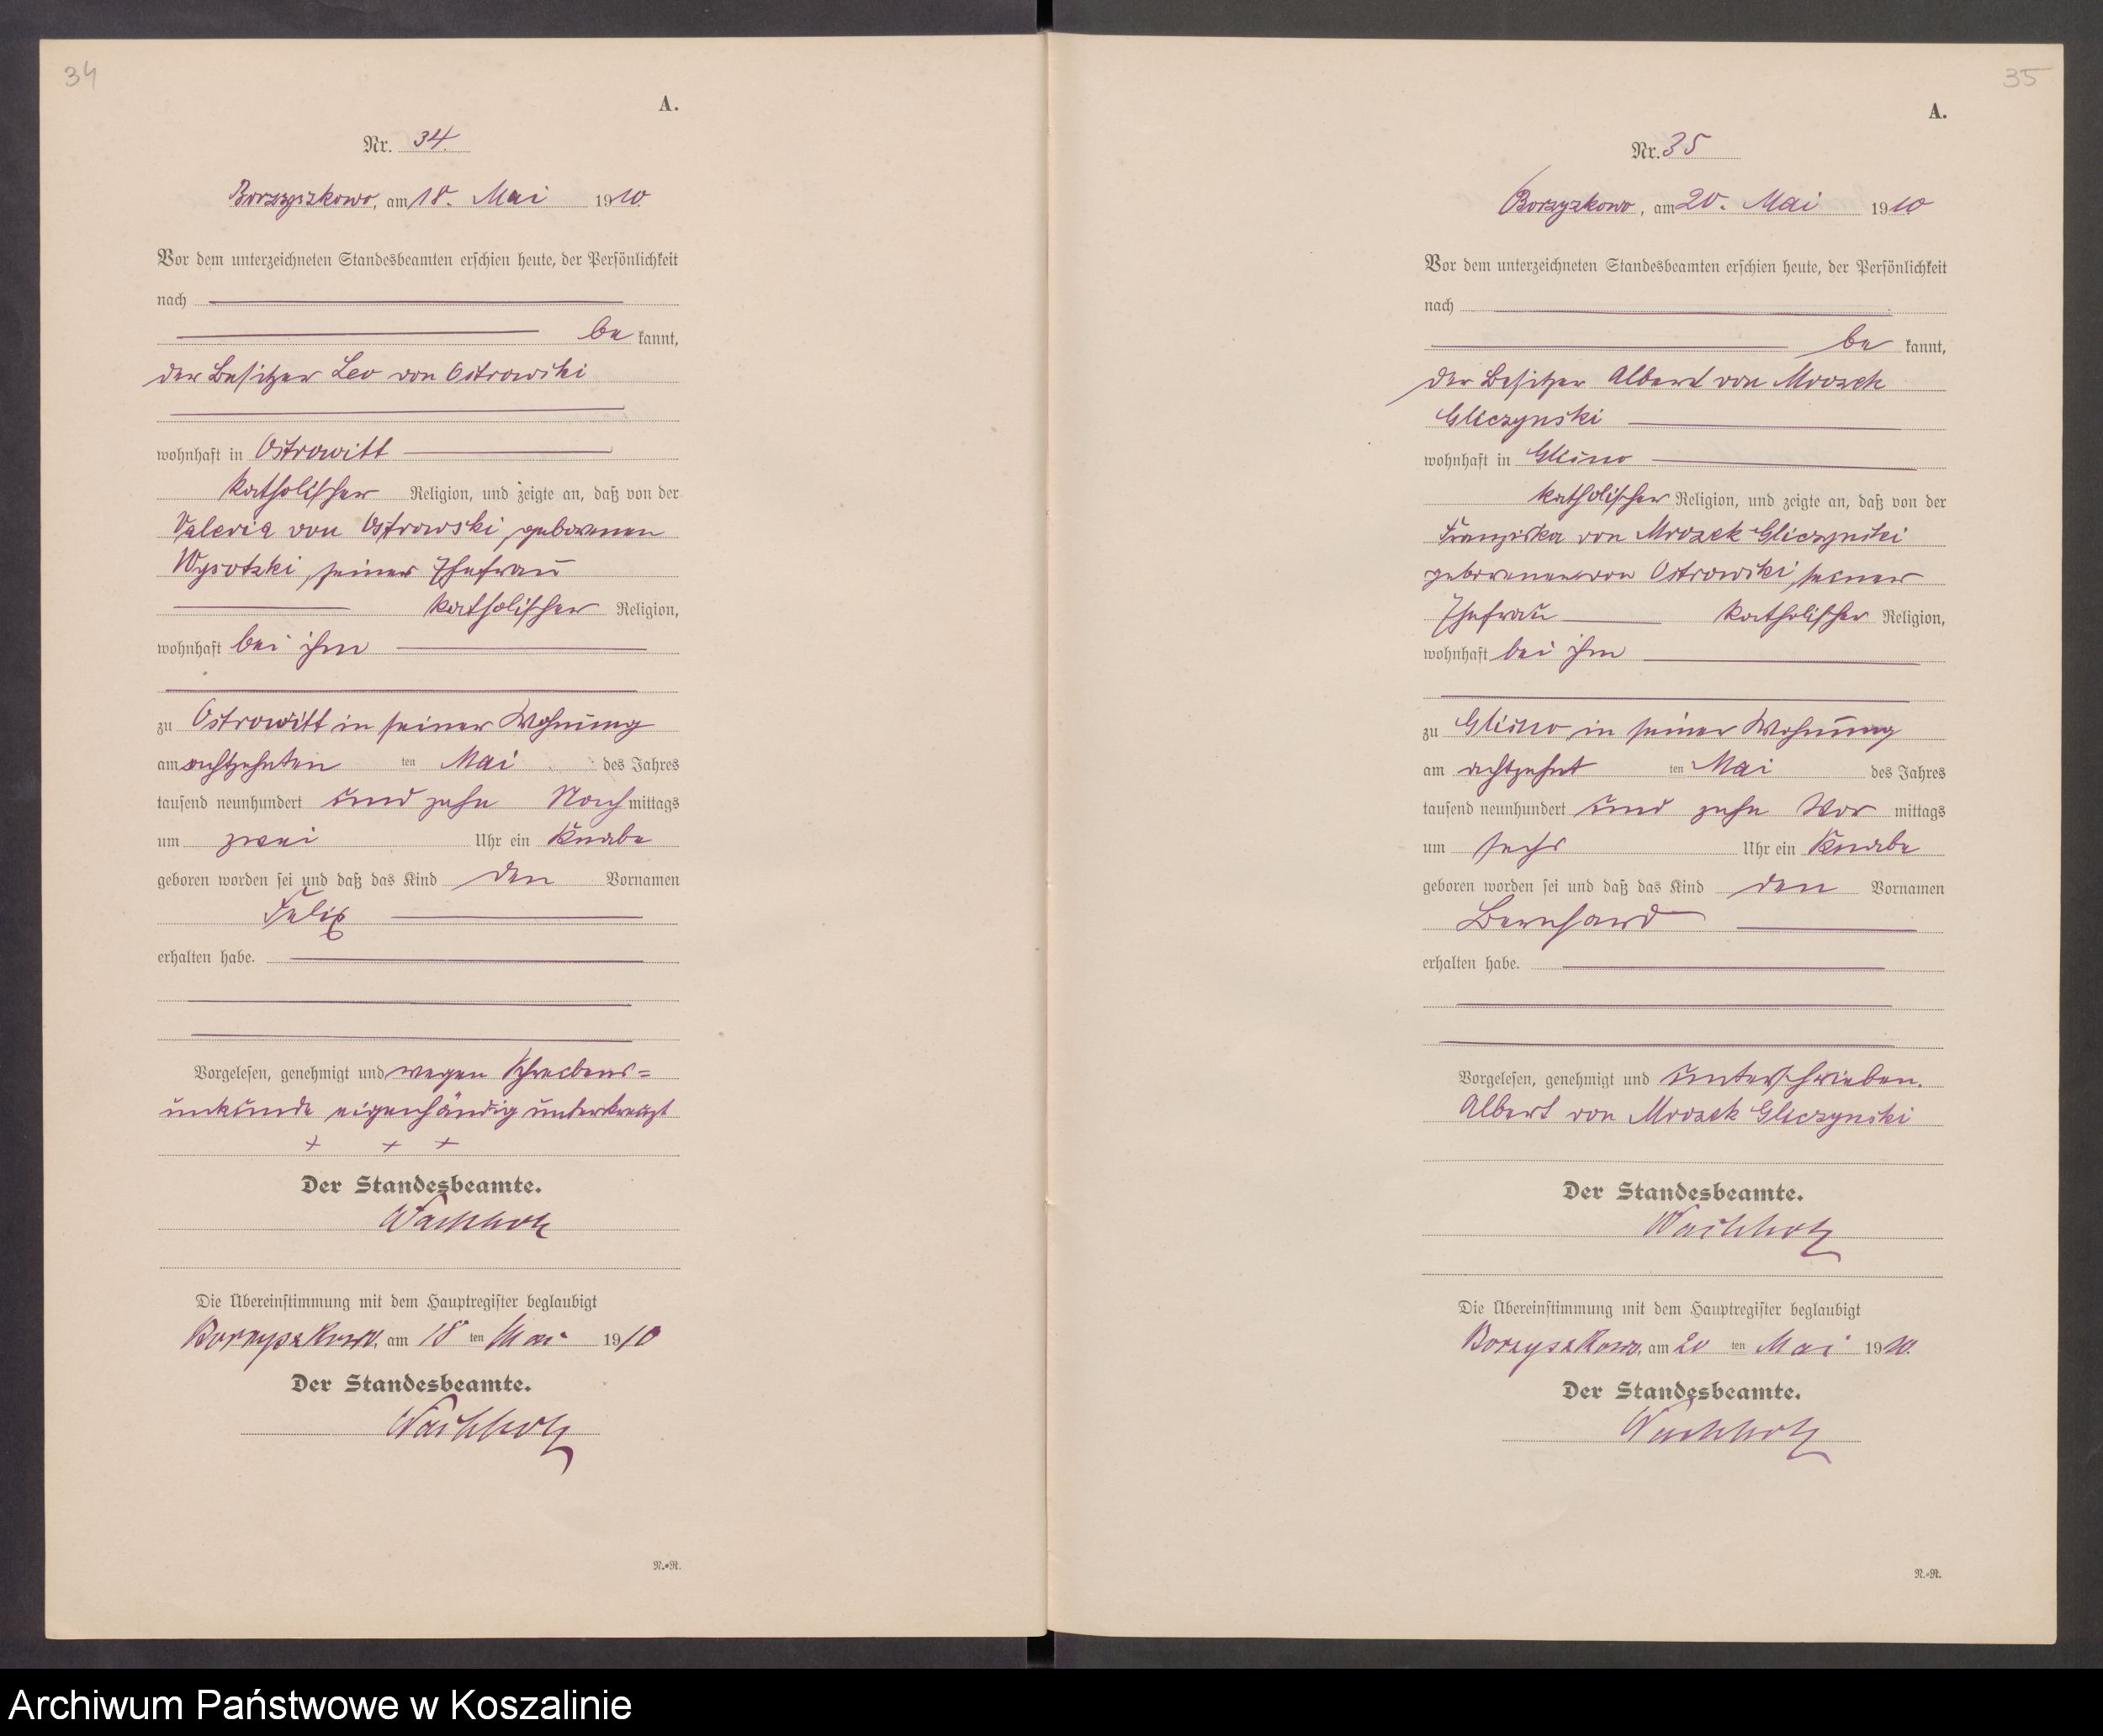 34
A.
Nr. 34.
Borzyszkowo, am 18. Mai 1910.
Vor dem unterzeichneten Standesbeamten erschien heute, der Persönlichkeit
nach
be kannt,
der Besitzer Leo von Ostrowski
wohnhaft in Ostrowitt
katholischer Religion, und zeigte an, daß von der
Valeria von Ostrowski, geborenen
Wysotzki, seiner Ehefrau
katholischer Religion,
wohnhaft bei ihm
zu Ostrowitt in seiner Wohnung
am achtzehnten ten Mai des Jahres
tausend neunhundert und zehn Nach mittags
um zwei Uhr ein Knabe
geboren worden sei und daß das Kind den Vornamen
Felix
erhalten habe.
Vorgelesen, genehmigt und wegen Schreibens=
unkunde eigenhändig unterkreuzt
+ + +
Der Standesbeamte.
Wachholz
Die Übereinstimmung mit dem Hauptregister beglaubigt
Borzyszkowo, am 18 ten Mai 1910
Der Standesbeamte.
Wachholz
N.-R.
35
A.
Nr. 35
Borzyzkowo, am 20. Mai 1910
Vor dem unterzeichneten Standesbeamten erschien heute, der Persönlichkeit
nach
be kannt,
der Besitzer Albert von Mrozek
Gliczynski
wohnhaft in Glisno
katholischer Religion, und zeigte an, daß von der
Franziska von Mrozek Gliczynski
geborenen von Ostrowski, seiner
Ehefrau katholischer Religion,
wohnhaft bei ihm
zu Glisno in seiner Wohnung
am achtzehnt ten Mai des Jahres
tausend neunhundert und zehn Vor mittags
um sechs Uhr ein Knabe
geboren worden sei und daß das Kind den Vornamen
Bernhard
erhalten habe.
Vorgelesen, genehmigt und unterschrieben.
Albert von Mrozek Gliczynski
Der Standesbeamte.
Wachholz
Die Übereinstimmung mit dem Hauptregister beglaubigt
Borzyszkowo, am 20 ten Mai 1910.
Der Standesbeamte.
Wachholz
N.-R.
Archiwum Państwowe w Koszalinie